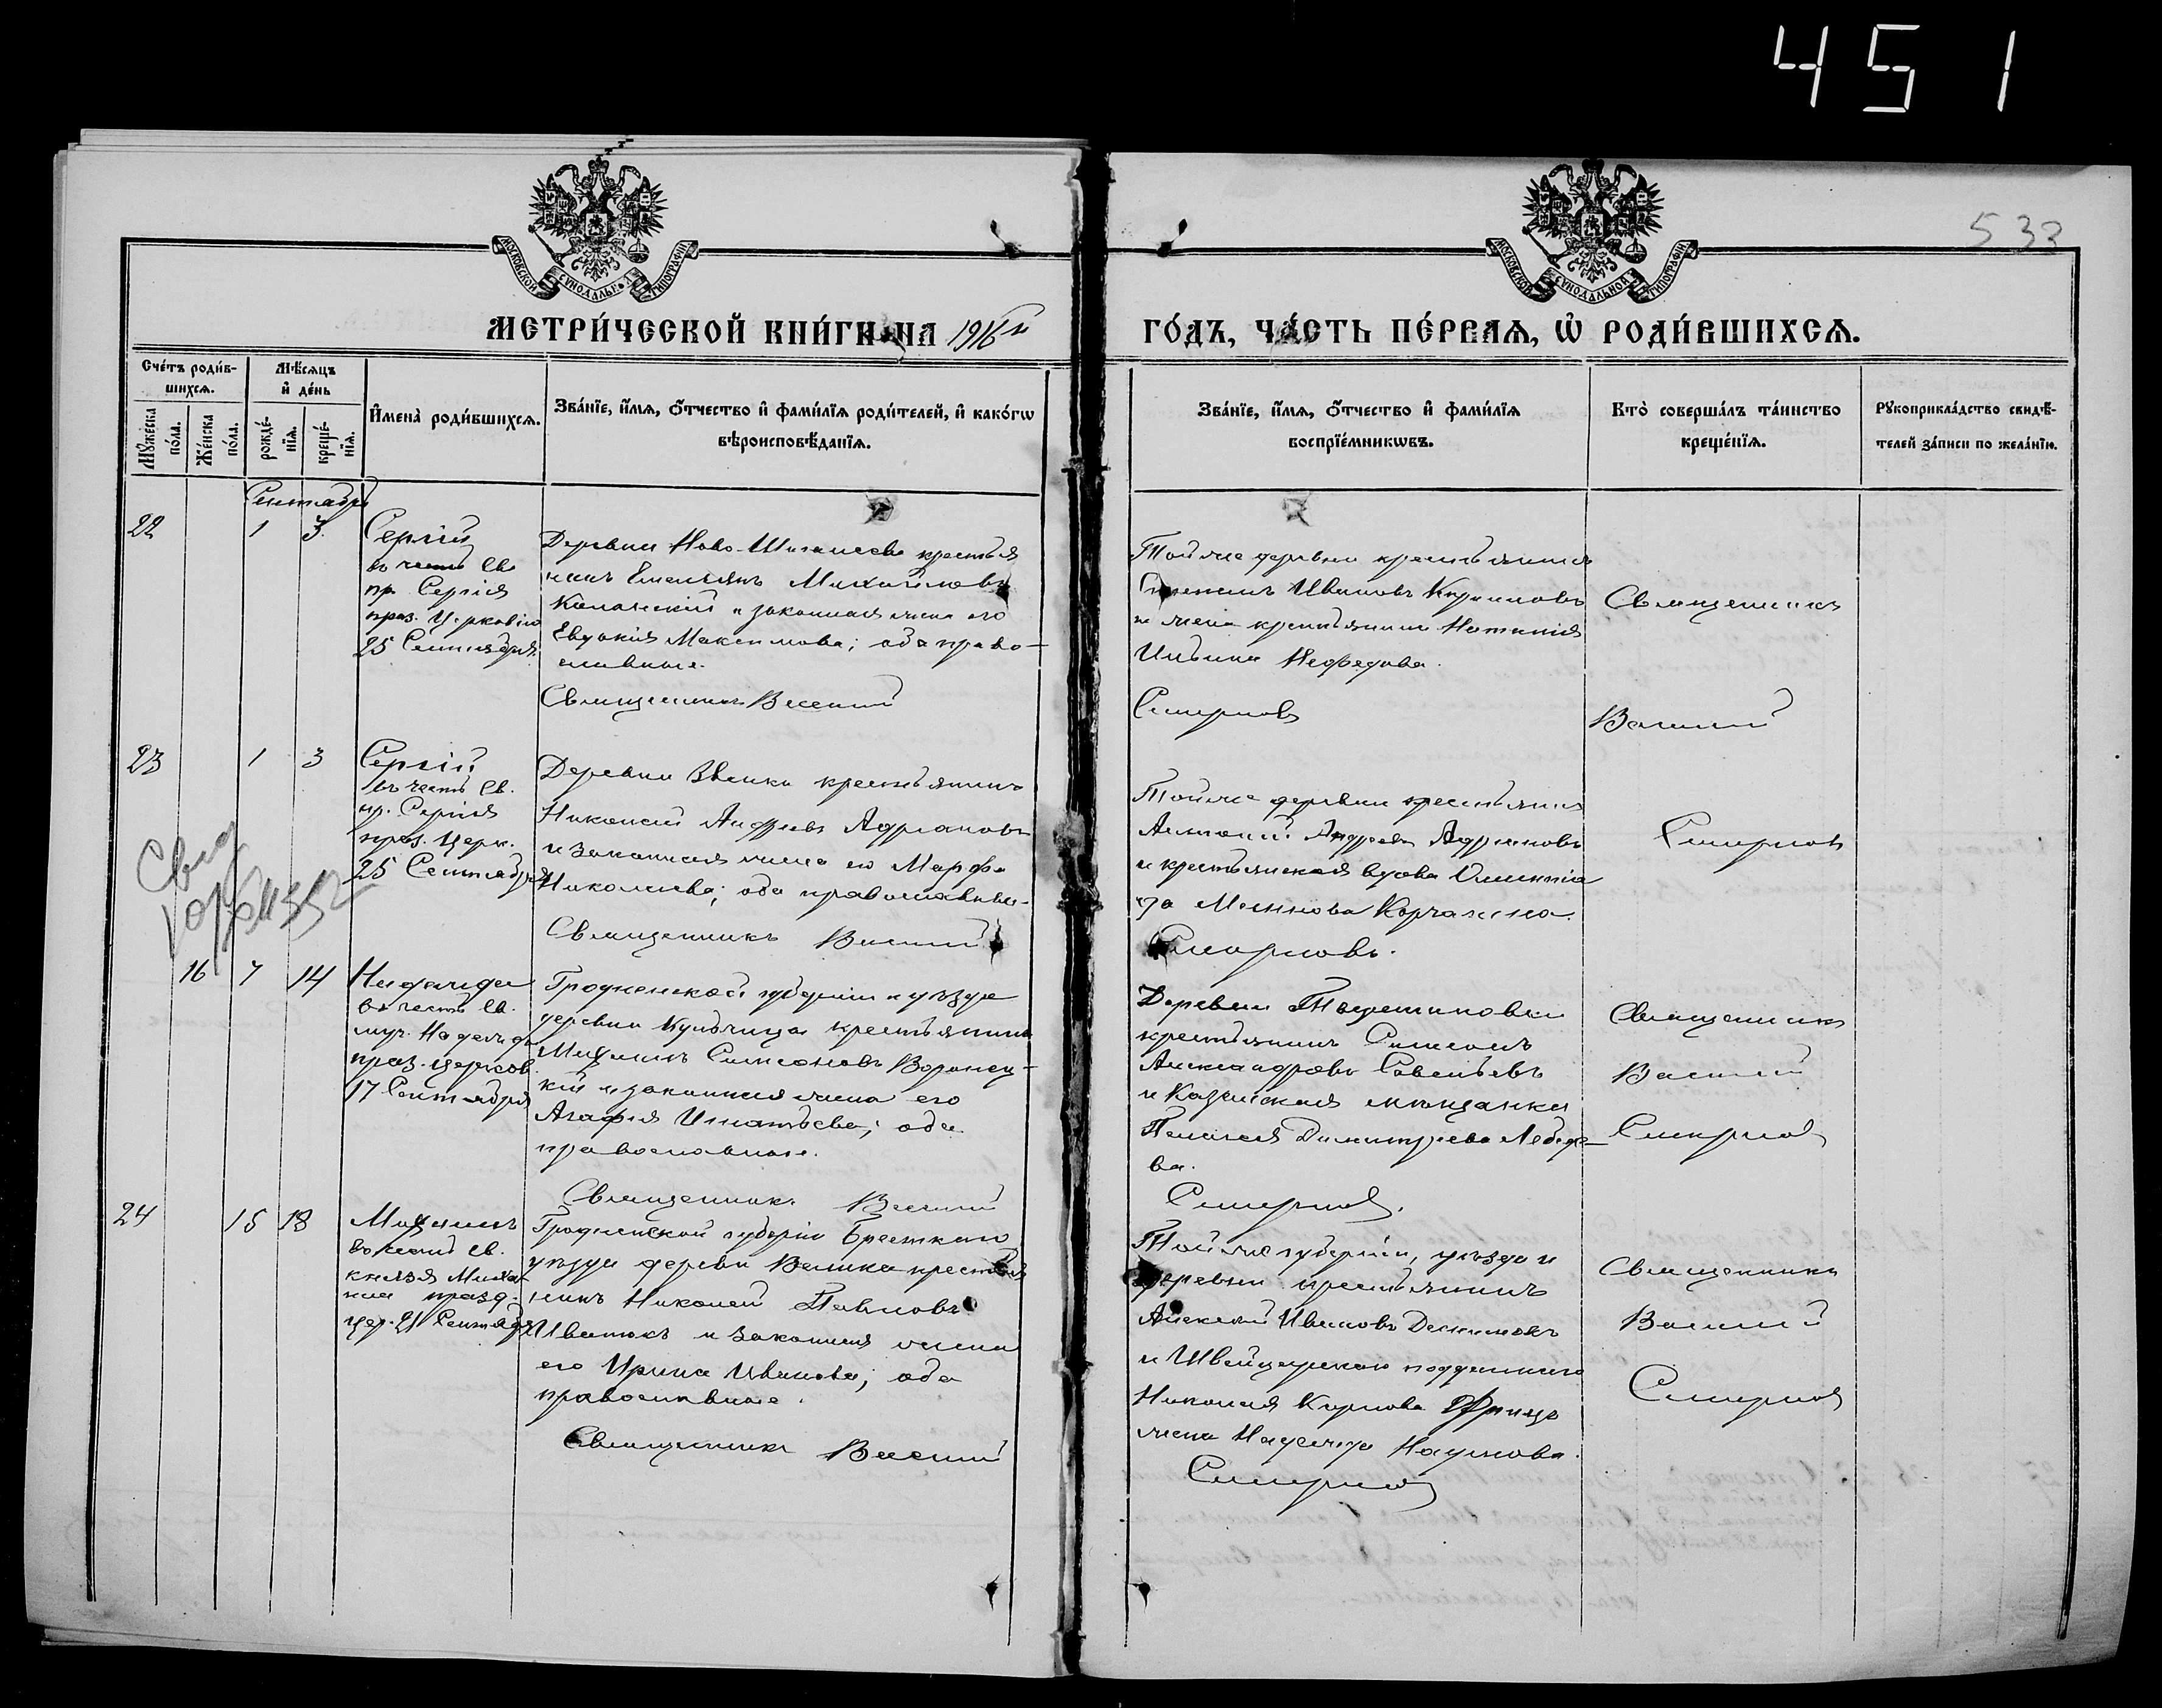 451
533
МОСКОВСКОЙ СѴНОДАЛЬНОЙ ТИПОГРАФІИ
МОСКОВСКОЙ СѴНОДАЛЬНОЙ ТИПОГРАФІИ
МЕТРИ́ЧЕСКОЙ КНИ́ГИ НА 1916й ГО́ДЪ, ЧА́СТЬ ПЕ́РВАЯ, Ѡ҆ РОДИ́ВШИХСЯ.
Сче́тъ роди́в-
шихся.
Мꙋ́жеска
по́ла.
Же́нска
по́ла.
Мѣ́сяцъ
и҆ де́нь
рожде́-
нїя.
креще́-
нїя.
И҆мена̀ роди́вшихся.
Зва́нїе, и҆́мя, ѻ҆́тчество и҆ фами́лїя роди́телей, и҆ како́гѡ
вѣроисповѣ́данїя.
Зва́нїе, и҆́мя, ѻ҆́тчество и҆ фами́лїя
воспрїе́мникѡвъ.
Кто̀ соверша́лъ та́инство
креще́нїя.
Рꙋкоприкла́дство свидѣ́-
телей за́писи по жела́нїю.
Сентябрь
22 1 3
Сергій
въ честь св.
пр. Сергія
праз. Церковію
25 Сентября.
Деревни Ново- крестья
нинъ Емельянъ Михайловъ
и законная жена его
Евдокія Максимова; оба право-
славные.
Священникъ Василий
Той же деревни крестьянинъ
Ивановъ
и жена крестьянина
Ильина Нефедова.
Смирновъ
Священникъ
Василий
23 1 3
Сергій
въ честь св.
пр. Сергія
праз. церк.
25 Сентября
Деревни крестьянинъ
Николай Андреевъ Адріановъ
и законная жена его Марфа
Николаева; оба православные.
Священникъ Василий
Той же деревни крестьянинъ
Андреевъ Адріановъ
и крестьянская вдова
Корчагина.
Смирновъ.
Смирнов
16 7 14
Надежда
въ честь св.
муч. Надежды
праз. церков.
17 Сентября
Гродненской губерніи и уѣзда
деревни крестьянинъ
Михаилъ Симеоновъ Воронец-
кій и законная жена его
Агафія Игнатьева; оба
православные.
Священник Василий
Деревни
крестьянинъ Симеонъ
Александровъ Савельевъ
и Казанская мѣщанка
Пелагея Димитріева Лебеде-
ва.
Смирнов.
Священникъ
Василий
Смирнов
24 15 18
Михаилъ
въ честь св.
князя Миха-
ила празд.
цер. 21 Сентября
Гродненской губерніи Брестскаго
уѣзда деревни крестья
нинъ Николай Павловъ
Иванюкъ и законная жена
его Ирина Иванова; оба
православные.
Священникъ Василий
Той же губерніи, уѣзда и
деревни крестьянинъ
Алексѣй Ивановъ
и Швейцарскаго подданнаго
Николая Карлова
жена Надежда Наумова.
Смирнов
Священникъ
Василий
Смирнов